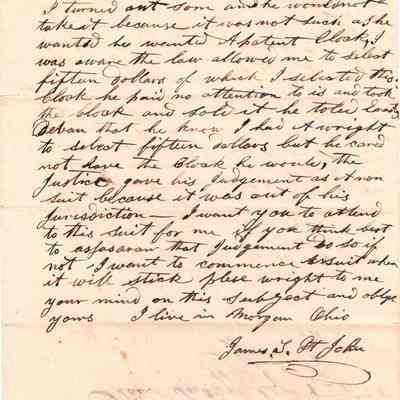 I turned out som and he would not
take it because it was not such as he
wanted he wanted A patent Clock, I
was aware the law allowed me to select
fifteen dollars of which I selected this
Clock he paid no attention to is and took
the clock and sold it he toled
that he know I had A wright
to select fifteen dollars but he cared
not have the Clock he would, the
Justice gave his Judgement as A non
suit because it was out of his
Jurisdiction — I want you to attend
to this suit for me if you think best
to that Judgement do so if
not I want to commence suit when
it will stick plese wright to me
your mind on this Subject and oblige
yours I live in Morgan Ohio
James S. St John